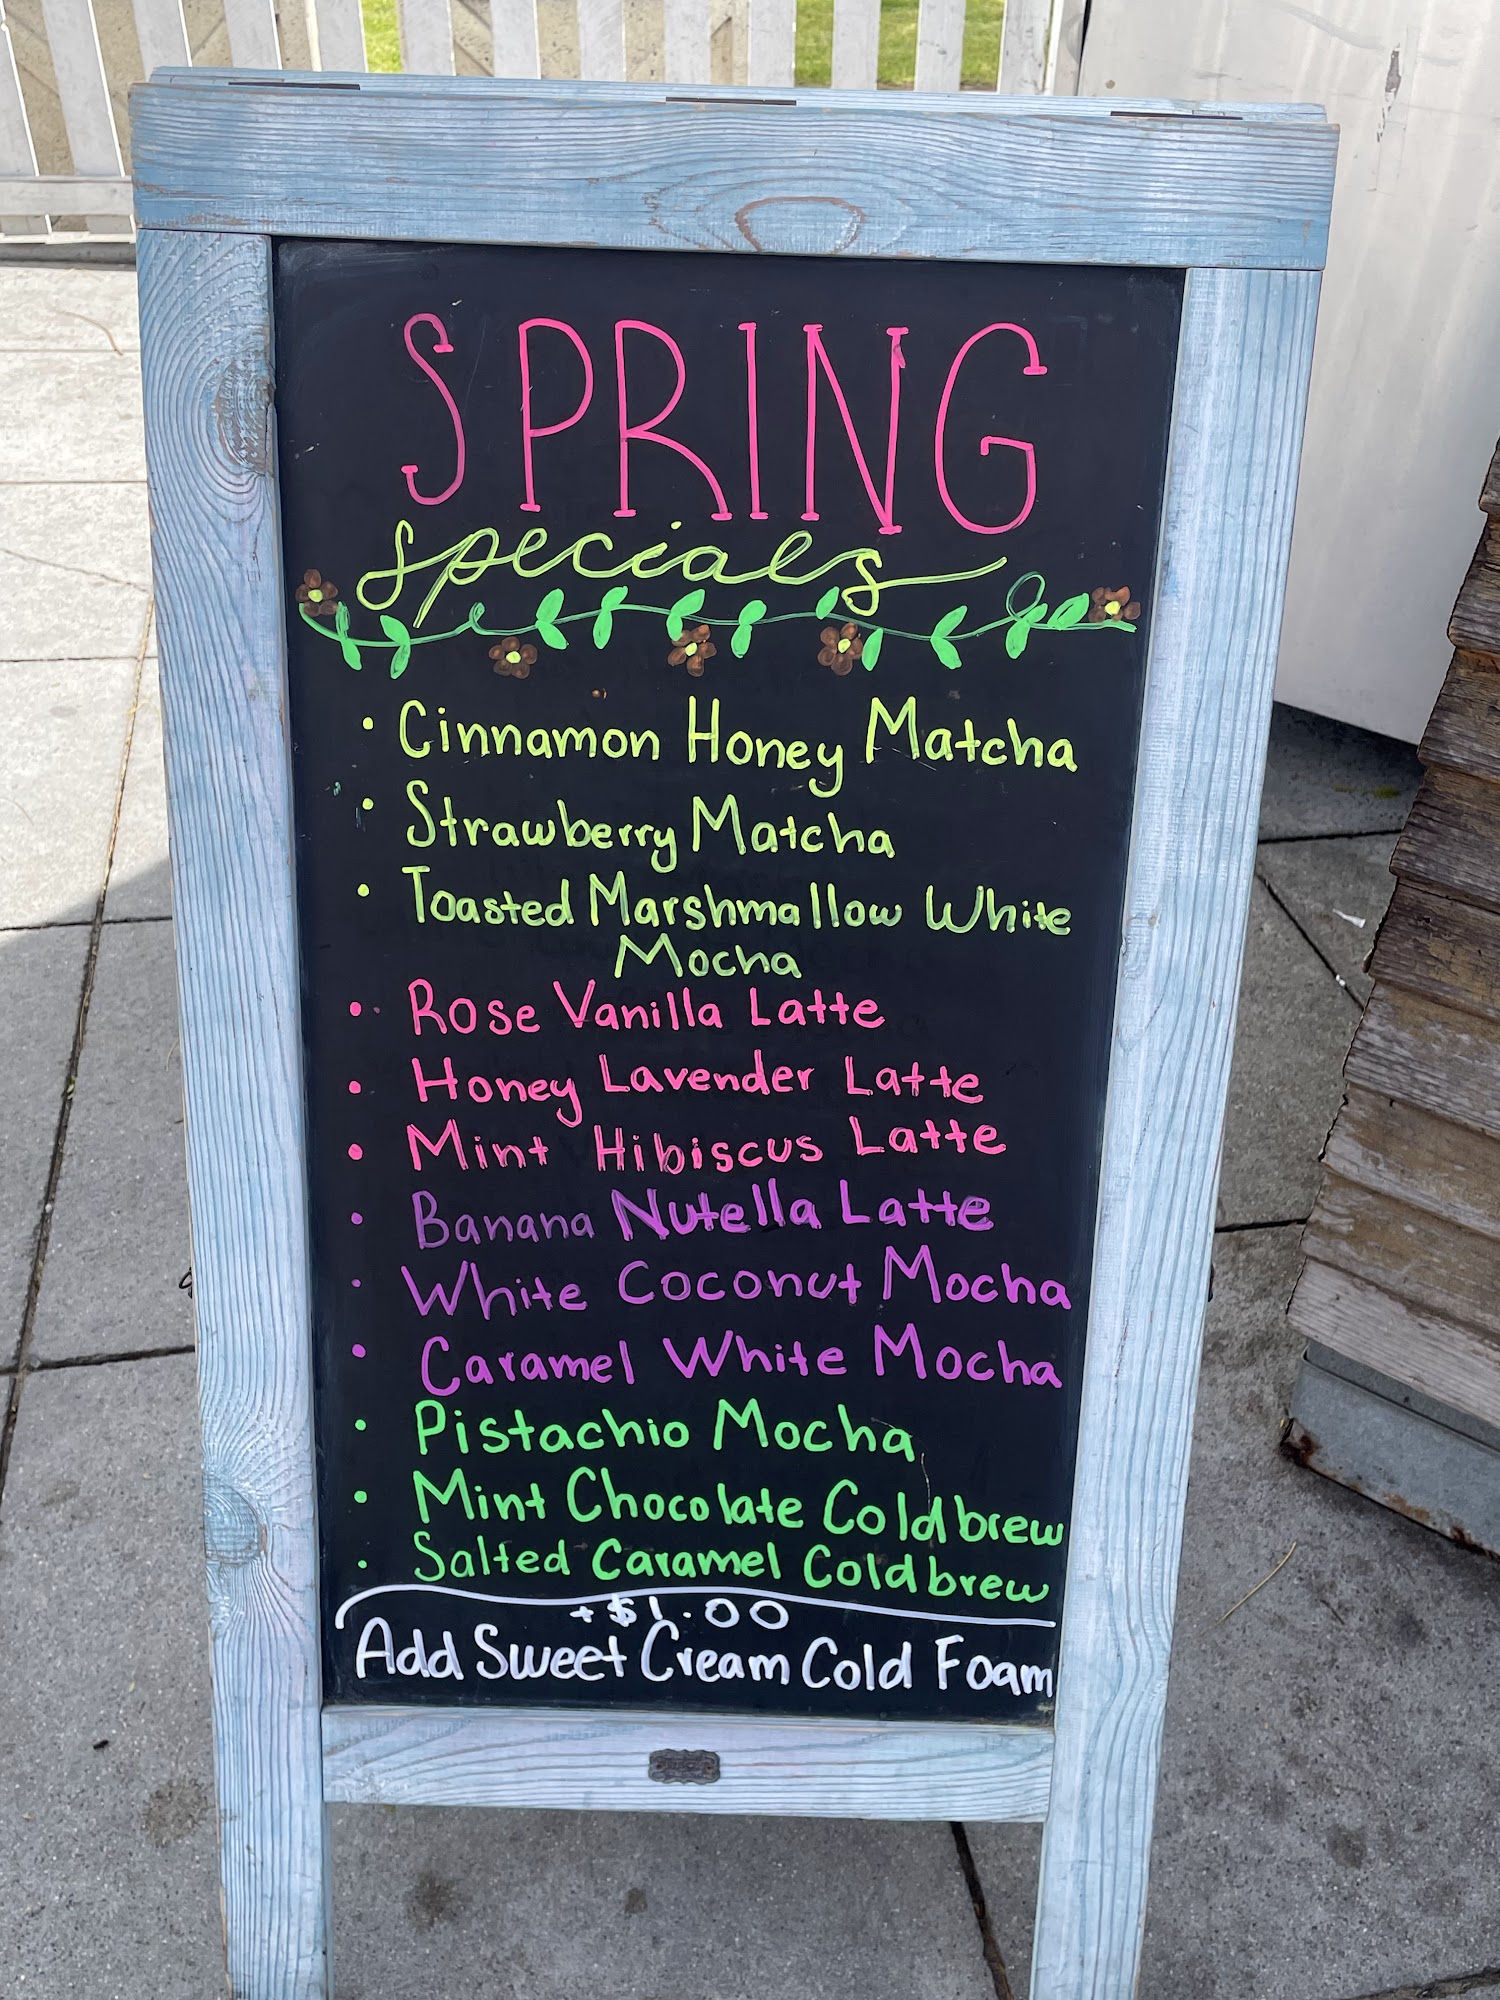 SPRING
specials
• Cinnamon Honey Matcha
• Strawberry Matcha
• Toasted Marshmallow White
Mocha
• Rose Vanilla Latte
• Honey Lavender Latte
• Mint Hibiscus Latte
• Banana Nutella Latte
• White Coconut Mocha
• Caramel White Mocha
• Pistachio Mocha
• Mint Chocolate Coldbrew
• Salted Caramel Coldbrew
+$1.00
Add Sweet Cream Cold Foam